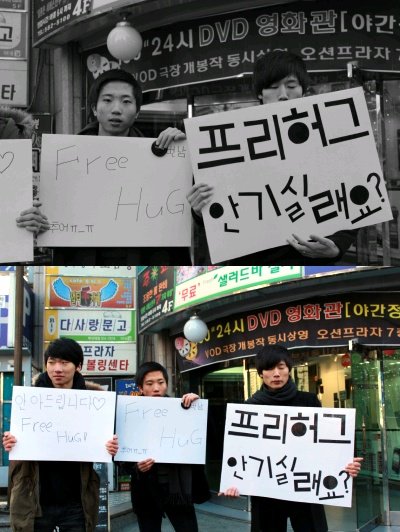 24시DVD 영화관 [야간
VOD극장개봉작 동시상영 오션프라자
4F
♡
Free
HuG
주어ㅠ_ㅠ
프리허그
안기실래요?
"무료"
샐러드바
24시 DVD 영화관 [야간정
VOD극장개봉작 동시상영 오션프라자 7
다사랑문고
프라자
볼링센타
안아드립니다♡
Free
HuG!!
Free
HuG
프리허그
안기실래요?